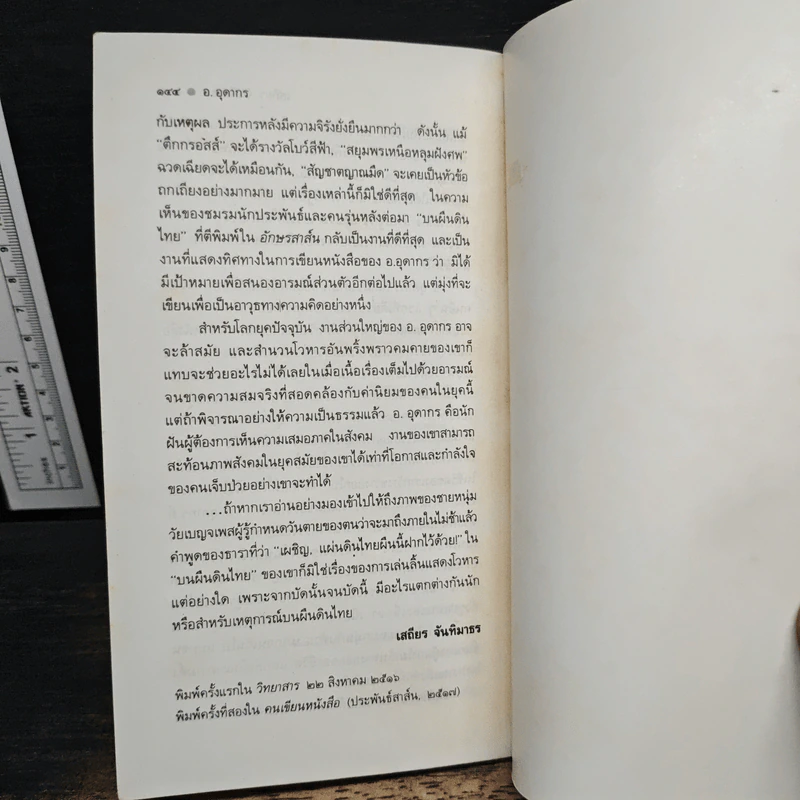 ๑๔๔ ● อ. อุดากร
กับเหตุผล ประการหลังมีความจีรังยั่งยืนมากกว่า ดังนั้น แม้
"ตึกกรอสส์" จะได้รางวัลโบว์สีฟ้า, "สยุมพรเหนือหลุมฝังศพ"
ฉวดเฉียดจะได้เหมือนกัน, "สัญชาตญาณมืด" จะเคยเป็นหัวข้อ
ถกเถียงอย่างมากมาย แต่เรื่องเหล่านี้ก็มิใช่ดีที่สุด ในความ
เห็นของชมรมนักประพันธ์และคนรุ่นหลังต่อมา "บนผืนดิน
ไทย" ที่ตีพิมพ์ใน อักษรสาส์น กลับเป็นงานที่ดีที่สุด และเป็น
งานที่แสดงทิศทางในการเขียนหนังสือของ อ.อุดากร ว่า มิได้
มีเป้าหมายเพื่อสนองอารมณ์ส่วนตัวอีกต่อไปแล้ว แต่มุ่งที่จะ
เขียนเพื่อเป็นอาวุธทางความคิดอย่างหนึ่ง
สำหรับโลกยุคปัจจุบัน งานส่วนใหญ่ของ อ. อุดากร อาจ
จะล้าสมัย และสำนวนโวหารอันพริ้งพราวคมคายของเขาก็
แทบจะช่วยอะไรไม่ได้เลยในเมื่อเนื้อเรื่องเต็มไปด้วยอารมณ์
จนขาดความสมจริงที่สอดคล้องกับค่านิยมของคนในยุคนี้
แต่ถ้าพิจารณาอย่างให้ความเป็นธรรมแล้ว อ. อุดากร คือนัก
ฝันผู้ต้องการเห็นความเสมอภาคในสังคม งานของเขาสามารถ
สะท้อนภาพสังคมในยุคสมัยของเขาได้เท่าที่โอกาสและกำลังใจ
ของคนเจ็บป่วยอย่างเขาจะทำได้
...ถ้าหากเราอ่านอย่างมองเข้าไปให้ถึงภาพของชายหนุ่ม
วัยเบญจเพสผู้รู้กำหนดวันตายของตนว่าจะมาถึงภายในไม่ช้าแล้ว
คำพูดของธาราที่ว่า "เผชิญ, แผ่นดินไทยผืนนี้ฝากไว้ด้วย!" ใน
"บนผืนดินไทย" ของเขาก็มิใช่เรื่องของการเล่นลิ้นแสดงโวหาร
แต่อย่างใด เพราะจากบัดนั้นจนบัดนี้ มีอะไรแตกต่างกันนัก
หรือสำหรับเหตุการณ์บนผืนดินไทย
เสถียร จันทิมาธร
พิมพ์ครั้งแรกใน วิทยาสาร ๒๒ สิงหาคม ๒๕๑๖
พิมพ์ครั้งที่สองใน คนเขียนหนังสือ (ประพันธ์สาส์น, ๒๕๑๗)
INCHES 1 2
AKTION
1 2 3 4 5 6 7 8 9